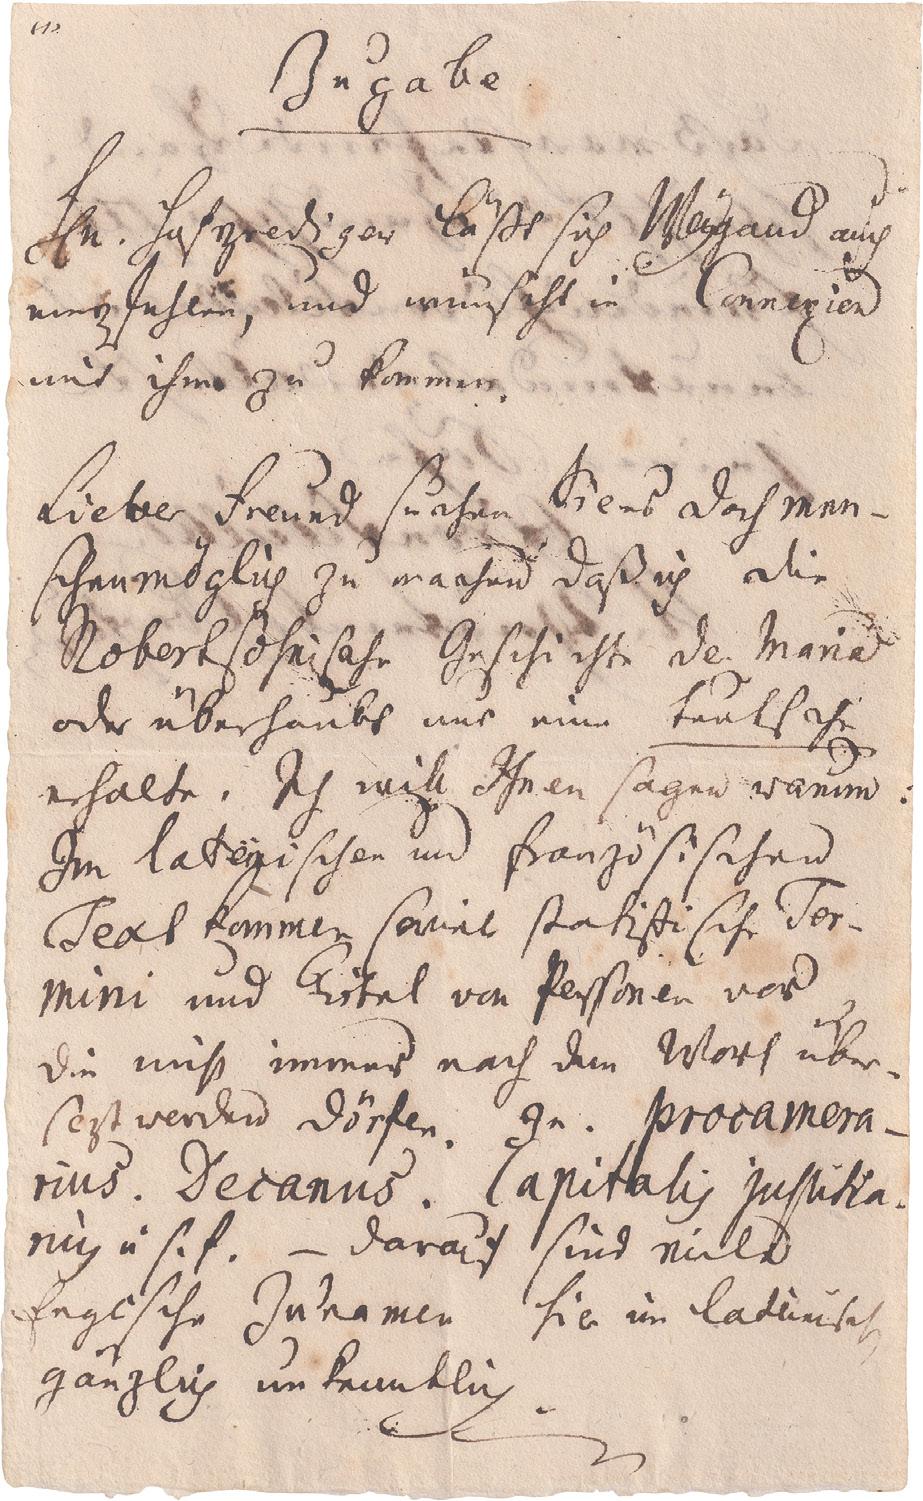 Zugabe
Hn. Hofprediger läßt sich Weygand auch
empfehlen, und wünscht in Connexion
mit ihm zu kommen.
Lieber Freund suchen Sie es doch men-
schenmöglich zu machen daß ich die
Robertsohnische Geschichte der Maria
oder überhaubt nur eine teutsche
erhalte. Ich will Ihnen sagen warum:
Im lateinischen und französischen
Text kommen soviele statistische Ter-
mini und Titel von Personen vor
die nicht immer nach dem Wort über-
sezt werden dörfen. Procamera-
rius. Decanus. Capitalis justitia-
rius u s. f. – darauf sind viele
Englische Zunamen hie im lateinisch
gänzlich unkenntlich.